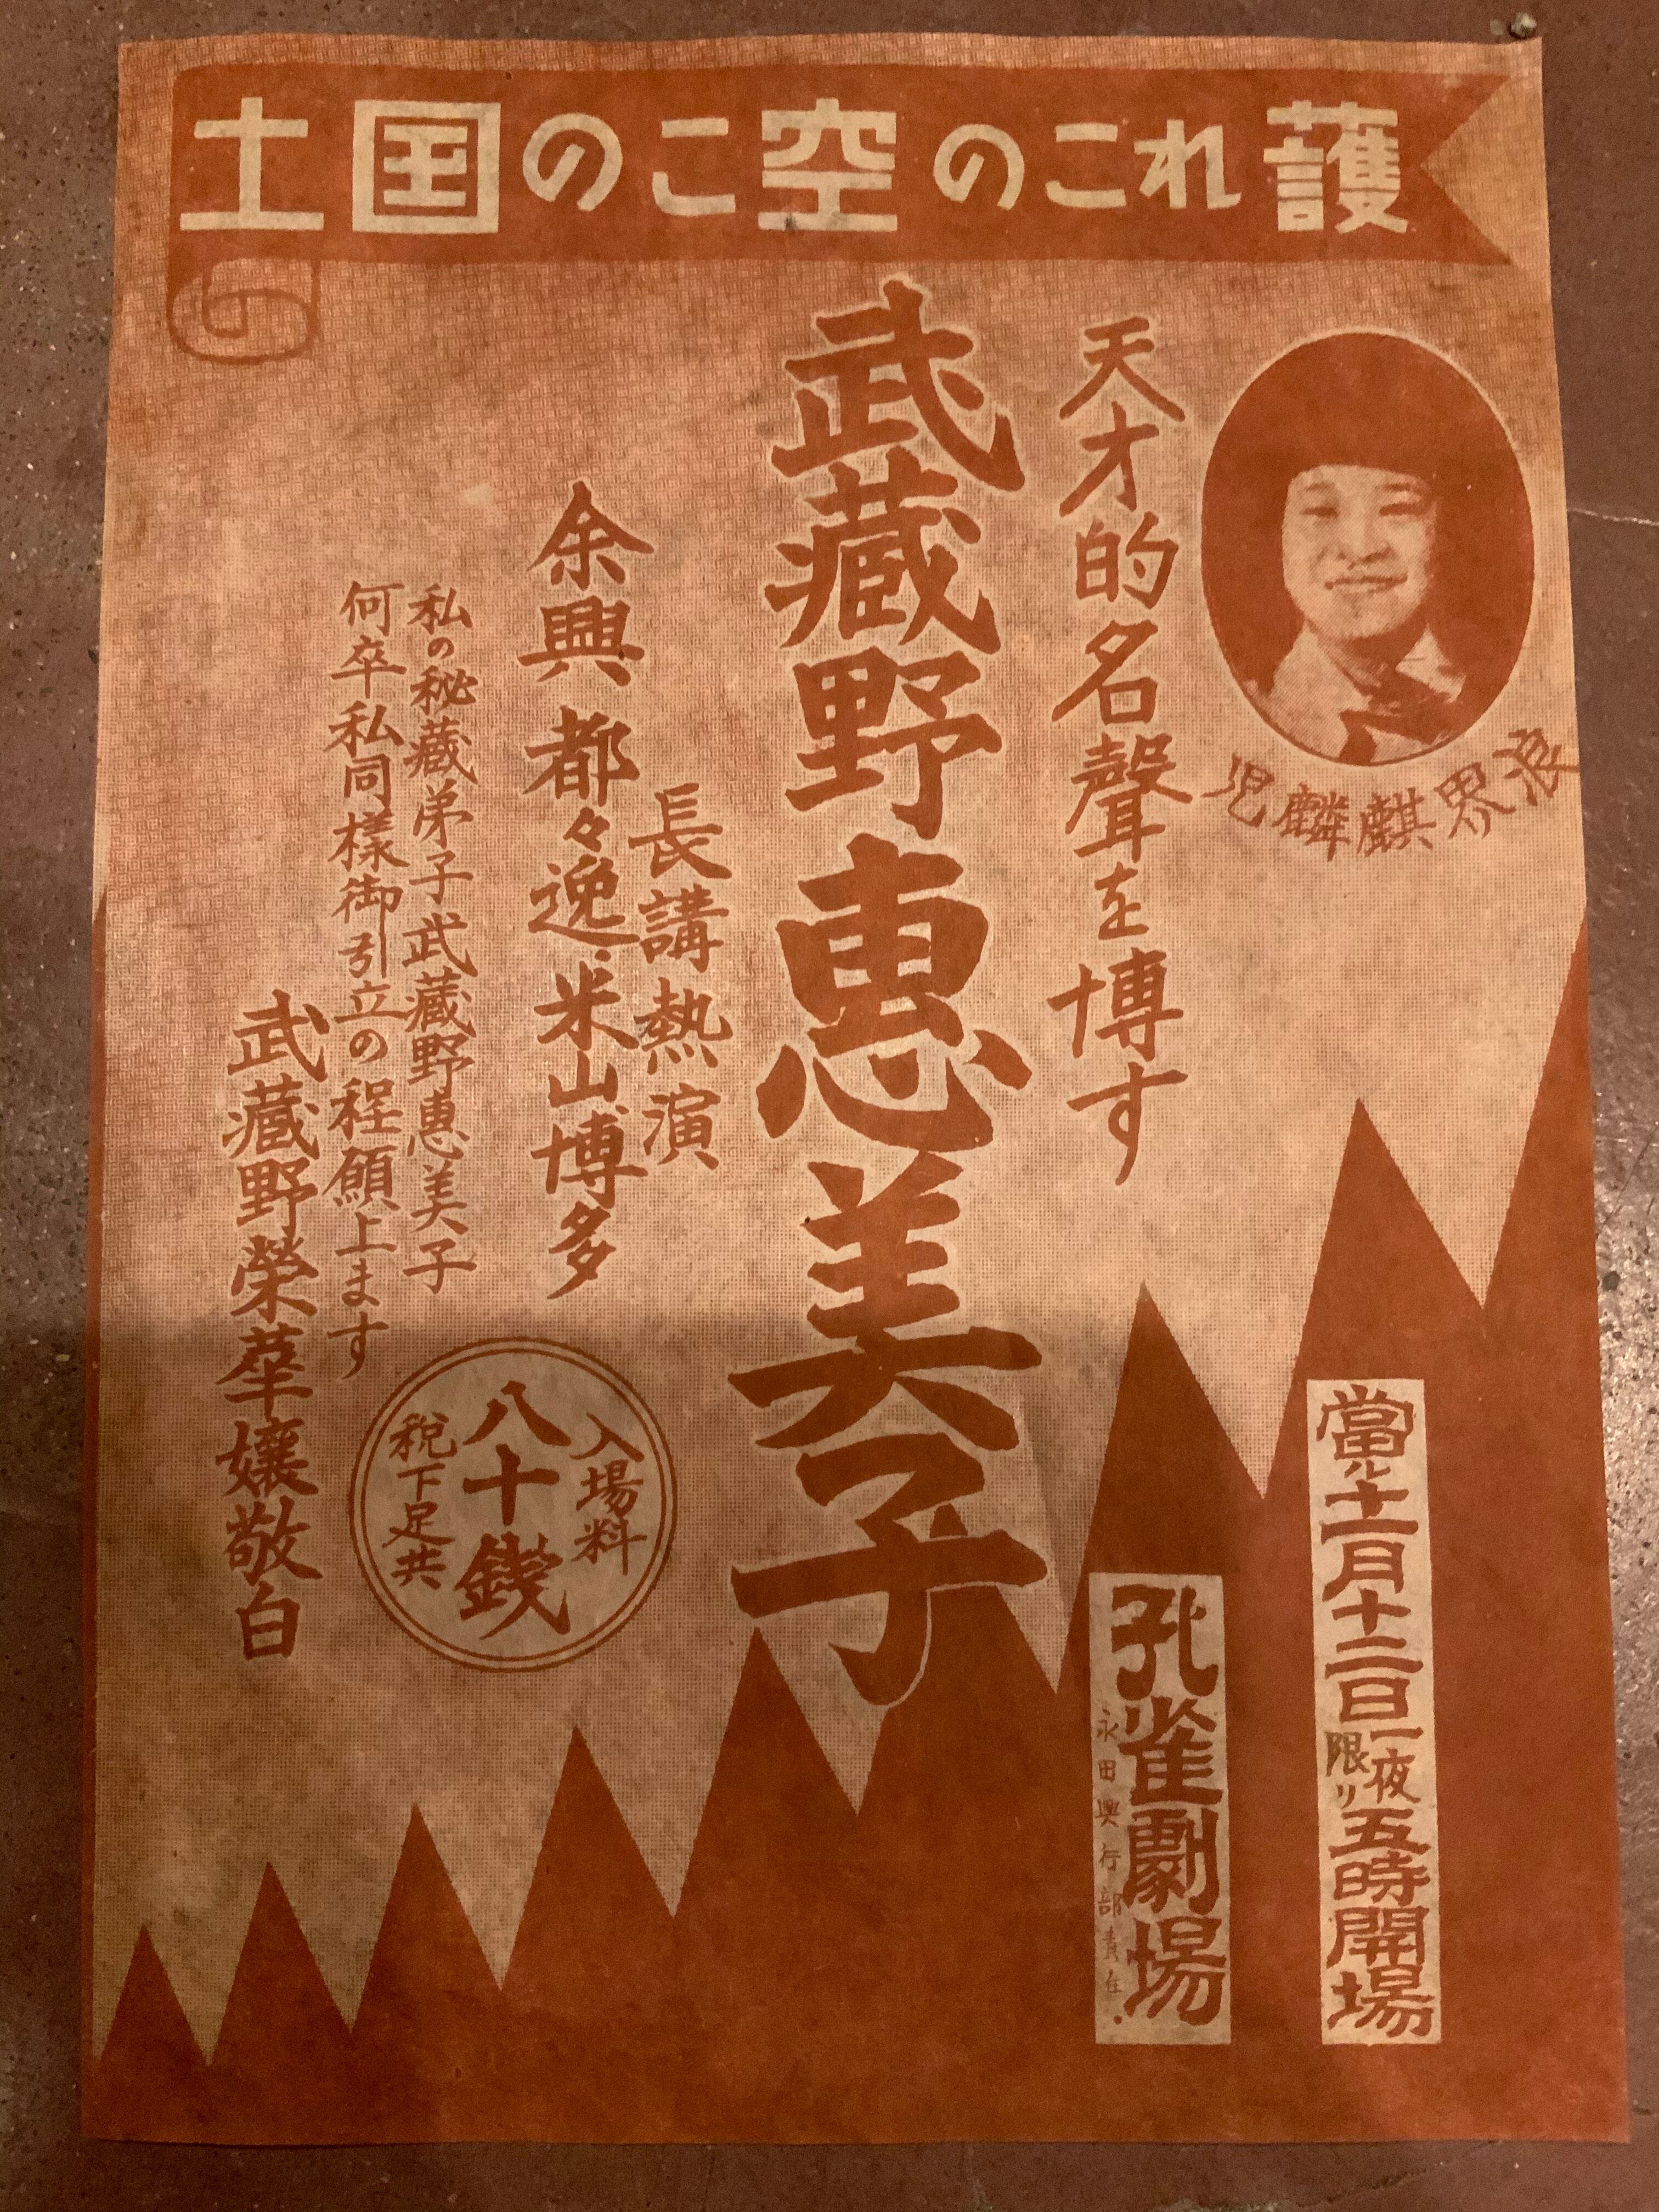 護れこの空この国土
浪界麒麟児
天才的名聲を博す
武蔵野恵美子
長講熱演
余興 都々逸・米山博多
私の秘蔵弟子武蔵野恵美子
何卒私同様御引立の程願上ます
武蔵野榮華嬢敬白
入場料
八十銭
税下足共
當ル十一月十二日一夜限リ五時開場
孔雀劇場
永田興行部責任.